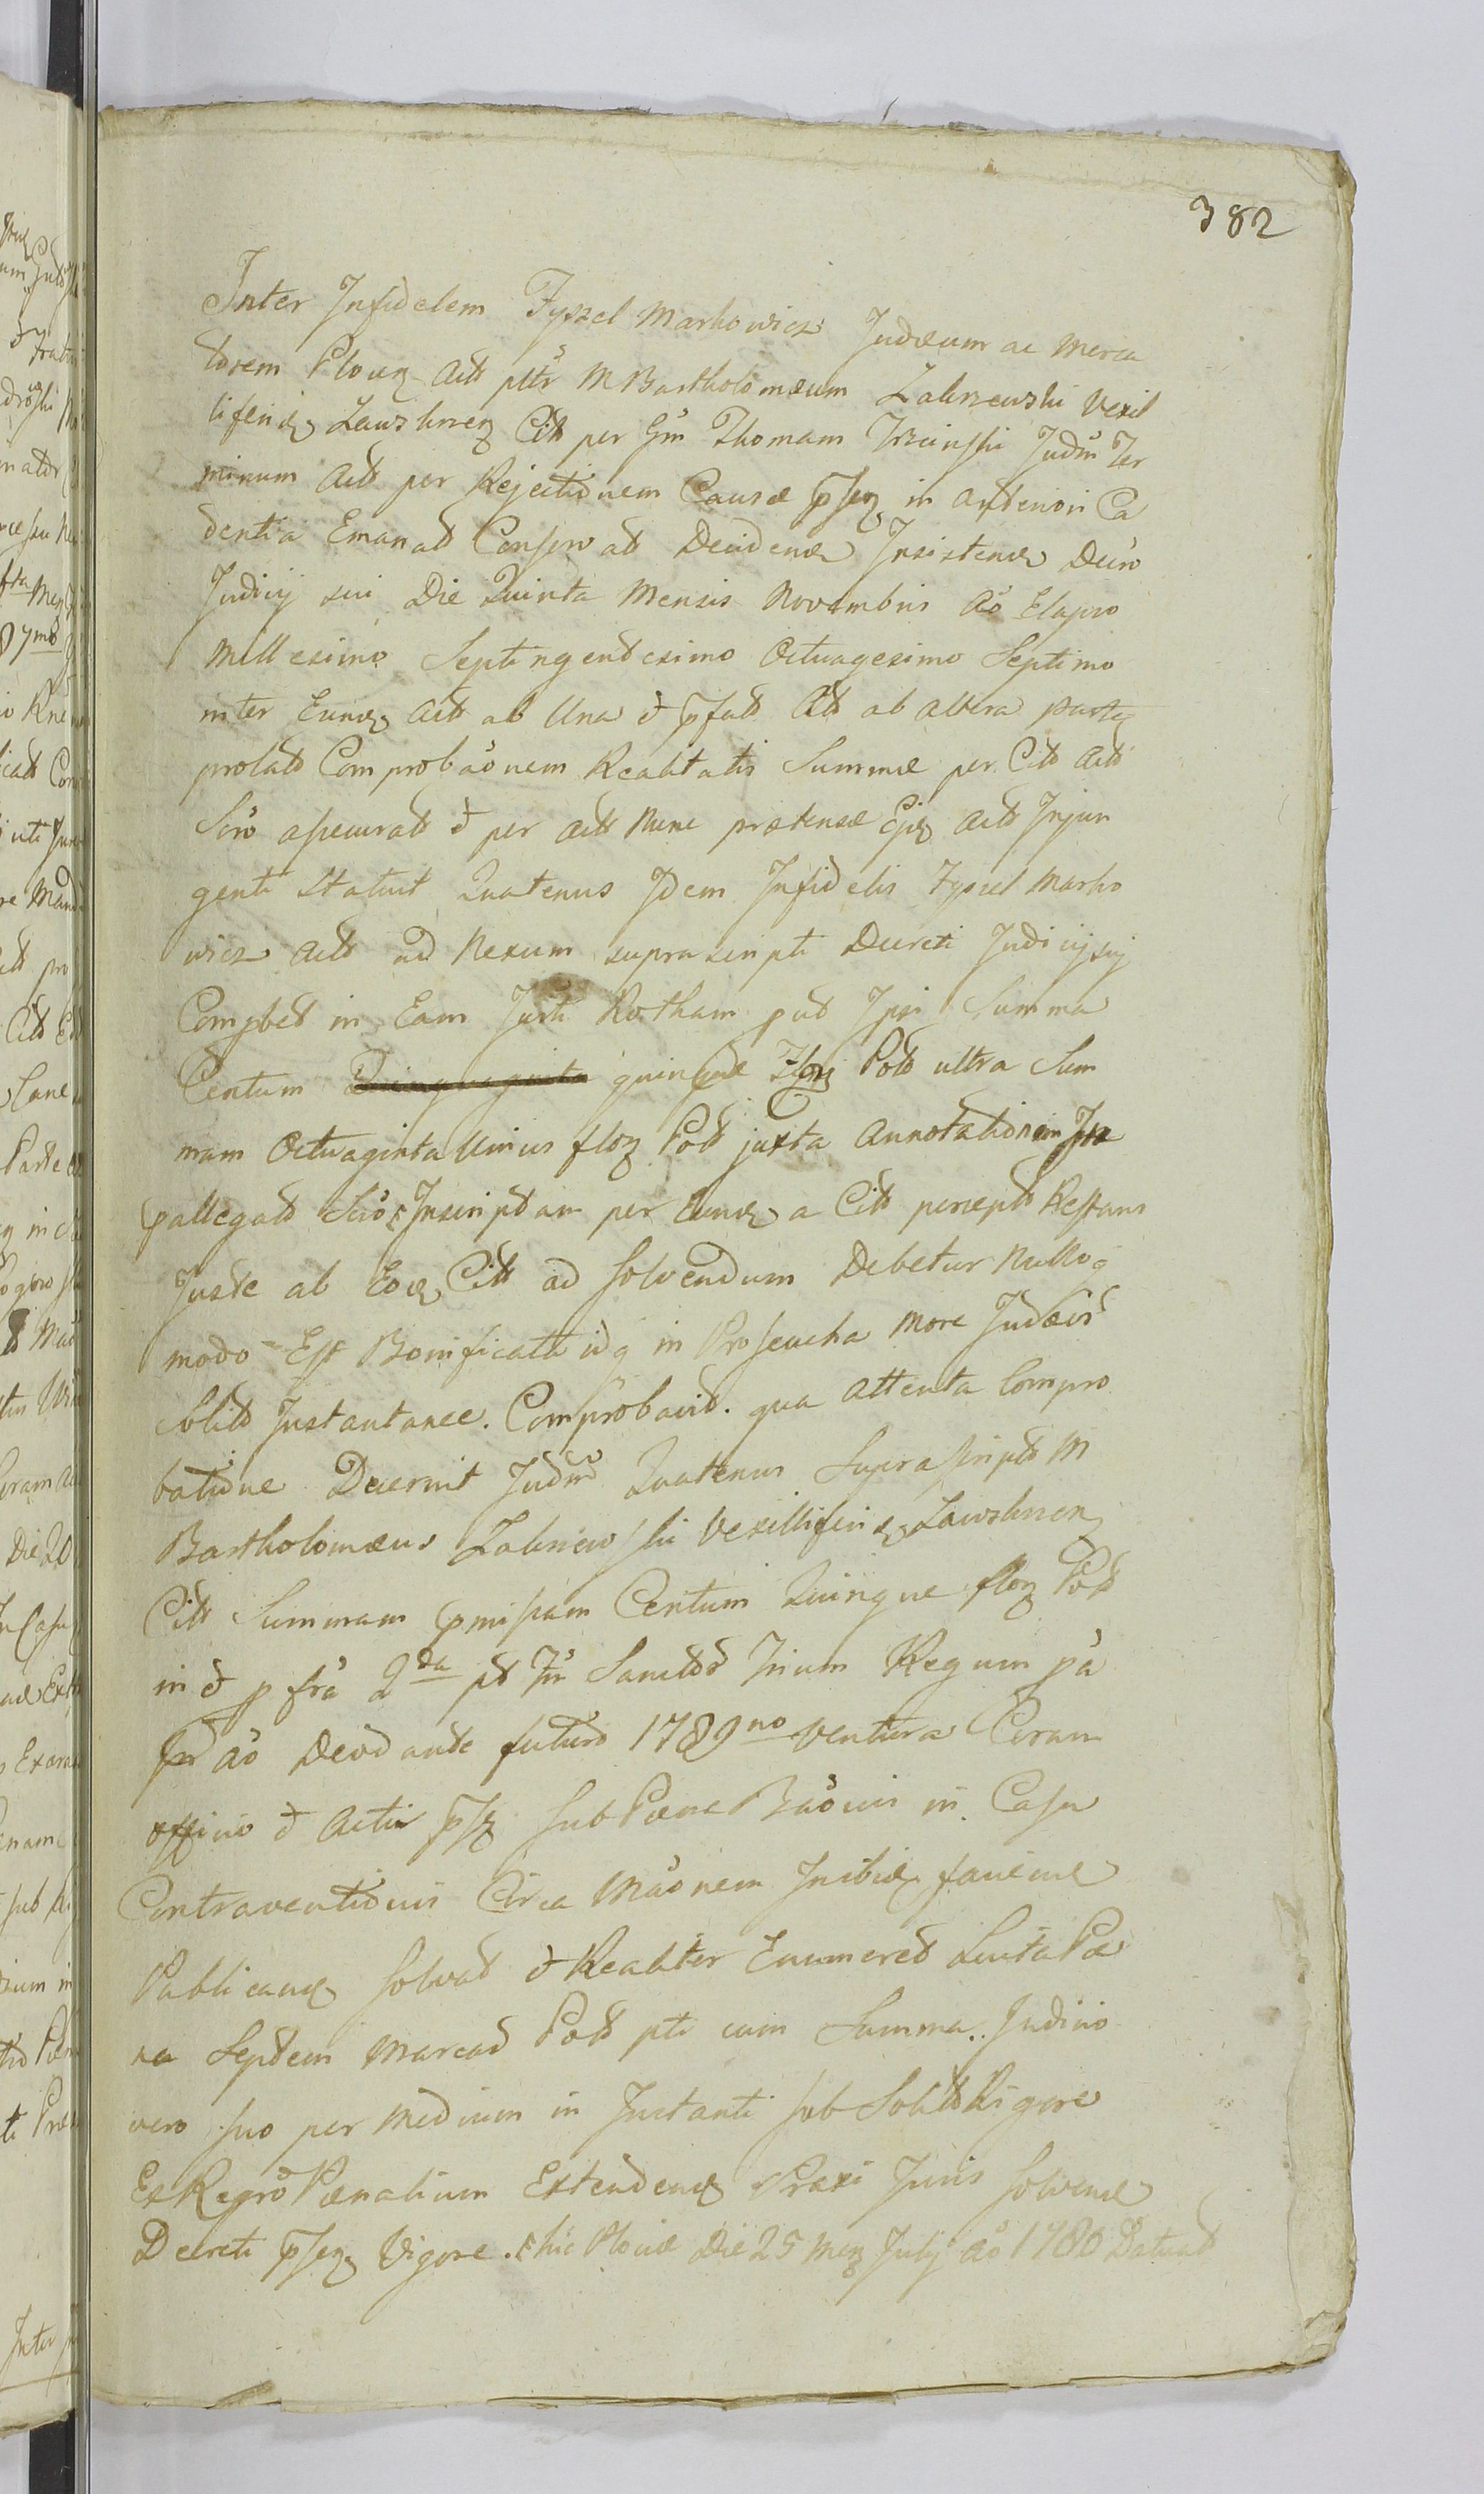 382
Inter Infidelem Fyszel Markowicz Judæum ac Merca
torem Plocen Actt M Bartholomæum Zakrzewski Vexil
liferu Zawskrzen Citt per Gm Thomam Judm Ter
minum Actt per Rejectionem Causæ pnsen in anteriori Ca
dentia Emanat Conserv at Deciden Insisten Decro
Judicij sui Die Quinta Mensis Novembris Ao Elapso
Millesimo Septingentesimo Octuagesimo Septimo
inter Eund Actt ab Una et pfatt Citt ab altera partg
prolatt Comprobaonem Realitatis Summæ per Citt Actt
Scro assecuratt et per Actt Nunc prætensæ Ejusd Actt Injun
genti Statuit Quatenus Idem Infidelis Fyszel Marko
wicz Actt ad Nexum suprascripti Decreti Judicij sui
Compbet in Eam Jurti Rotham qud Ipsi Summa
Centum Quinquaginta quinque Flor Polt ultra Sum
mam Octuaginta Unius flor Polt juxta Annotationem In
pallegatt Scro Inscriptam per Eund a Citt percept Restans
Juste ab Eod Citt ad solvendum Debetur Nulloq
modo Est Bonificata idq in Proseucha More Judæis
Solito Instantanee. Comprobavit. qua attenta Compro
batione Decernit Judm Quatenus Suprascriptt M
Bartholomæus Zakrzewski Vexilliferid Zawskrzen
Citt Summam pmissam Centum Quinque flor Polt
in et p fra 2da pt Fm Sanctor Trium Regum pa
in Ao Deo dante futuro 1789no ventura Coram
officio et Actis pns sub Pæna Baonis in Casu
Contraventionis Circa Maonem Inibi faciend
Publicand solvat et Realiter Enumeret Luita Pæ
na Septem Marcar Polt pti cum Summa. Judicio
vero suo per Medium in Instanti sub Solito Rigore
Ex Regro Pænalium Extenden Praxi Juris solvend
Decreti pnsen Vigore. hic Plociæ Die 25 Men Julij Ao 1780